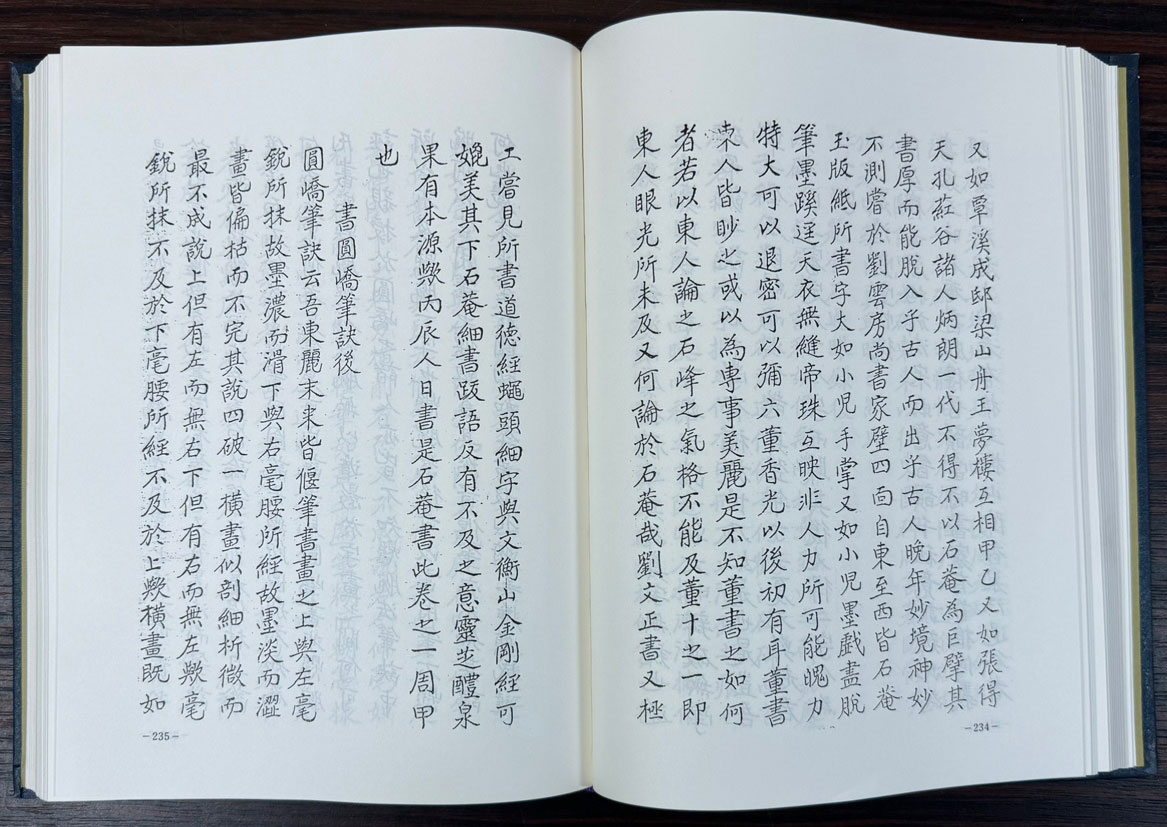 又如覃溪成邸梁山舟王夢樓互相甲乙又如張得
天孔葒谷諸人炳朗一代不得不以石菴為巨擘其
書厚而能脫入乎古人而出乎古人晚年妙境神妙
不測嘗於劉雲房尚書家壁四面自東至西皆石菴
玉版紙所書字大如小児手掌又如小児墨戲盡脫
筆墨蹊逕天衣無縫帝珠互映非人力所可能愧力
特大可以退密可以彌六董香光以後初有耳董書
東人皆眇之或以為專事美麗是不知董書之如何
者若以東人論之石峰之氣格不能及董十之一即
東人眼光所未及又何論於石菴哉劉文正書又極
-234-
工嘗見所書道德經蠅頭細字與文衡山金剛經可
媲美其下石菴細書跋語反有不及之意靈芝醴泉
果有本源歟丙辰人日書是石菴書此卷之一周甲
也
書圓嶠筆訣後
圓嶠筆訣云吾東麗末来皆偃筆書畫之上與左毫
銳所抹故墨濃而滑下與右毫腰所經故墨淡而澀
畫皆偏枯而不完其說四破一橫畫似剖細析微而
最不成說上但有左而無右下但有右而無左歟毫
銳所抹不及於下毫腰所經不及於上歟橫畫既如
-235-